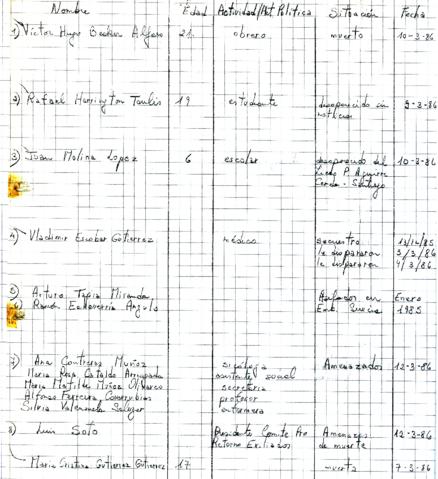 Nombre Edad Actividad/Act Politica Situación Fecha
1) Victor Hugo Becker Alfaro 21 obrero muerto 10-3-86
2) Rafael Harrington Taulis 19 estudiante desaparecido sin noticias 9-3-86
3) Juan Molina Lopez 6 escolar desaparecido del 10-3-86
Liceo P. Aguirre
Cerda - Santiago
4) Vladimir Escobar Gutierrez médico secuestro 13/12/85
le dispararon 3/3/86
le dispararon 4/3/86
5) Arturo Tapia Miranda Asilados en Enero
6) Ramón Echeverria Angulo Emb. Suecia 1985
7) Ana Contreras Muñoz sicóloga Amenazados 12-3-86
Maria Rosa Cataldo asistente social
Maria Matilde Muñoz Olivarco secretaria
Alfonso Ferreira profesor
Silvia Valenzuela Salazar enfermera
8) Luis Soto Presidente Comite Pro Amenazas 12-3-86
Retorno Exiliados de muerte
Maria Cristina Gutierrez Gutierrez 17 muerta 7-3-86